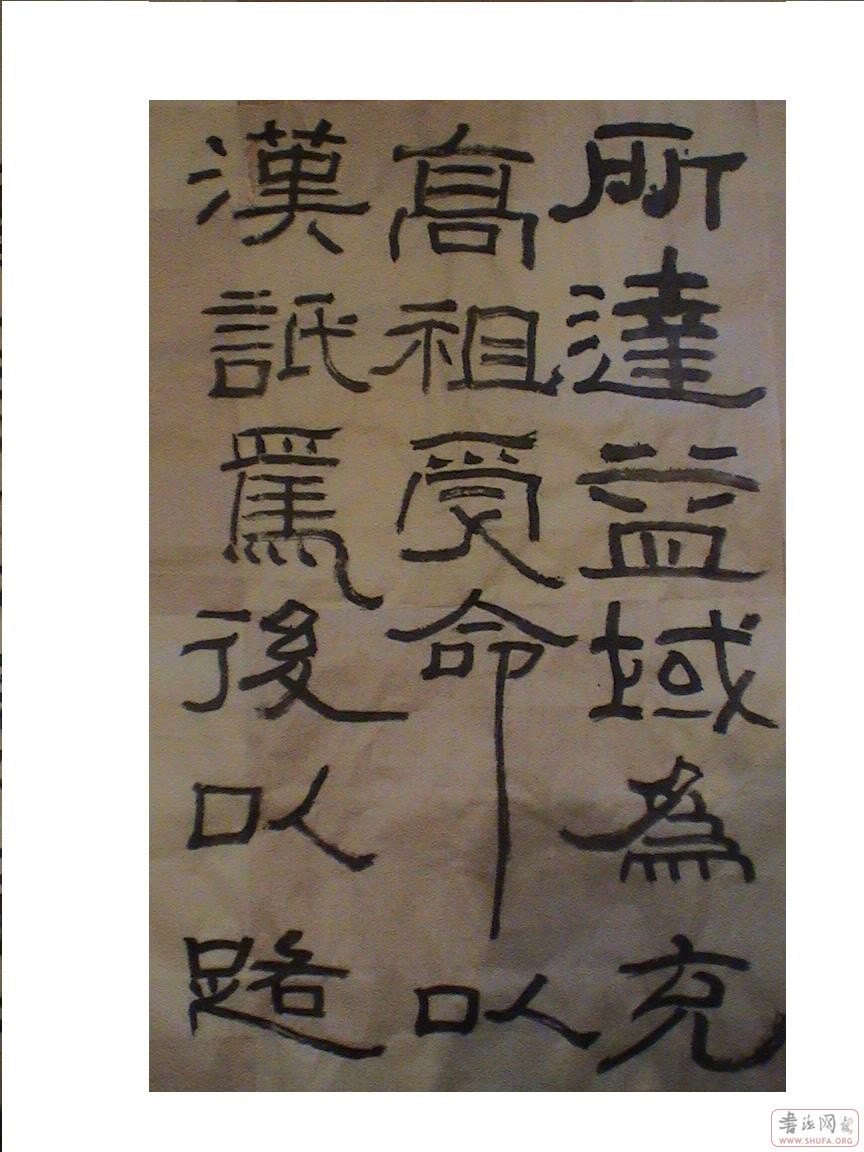 所達益域為充
高祖受命以
漢詆焉後以路
書法网
WWW.SHUFA.ORG